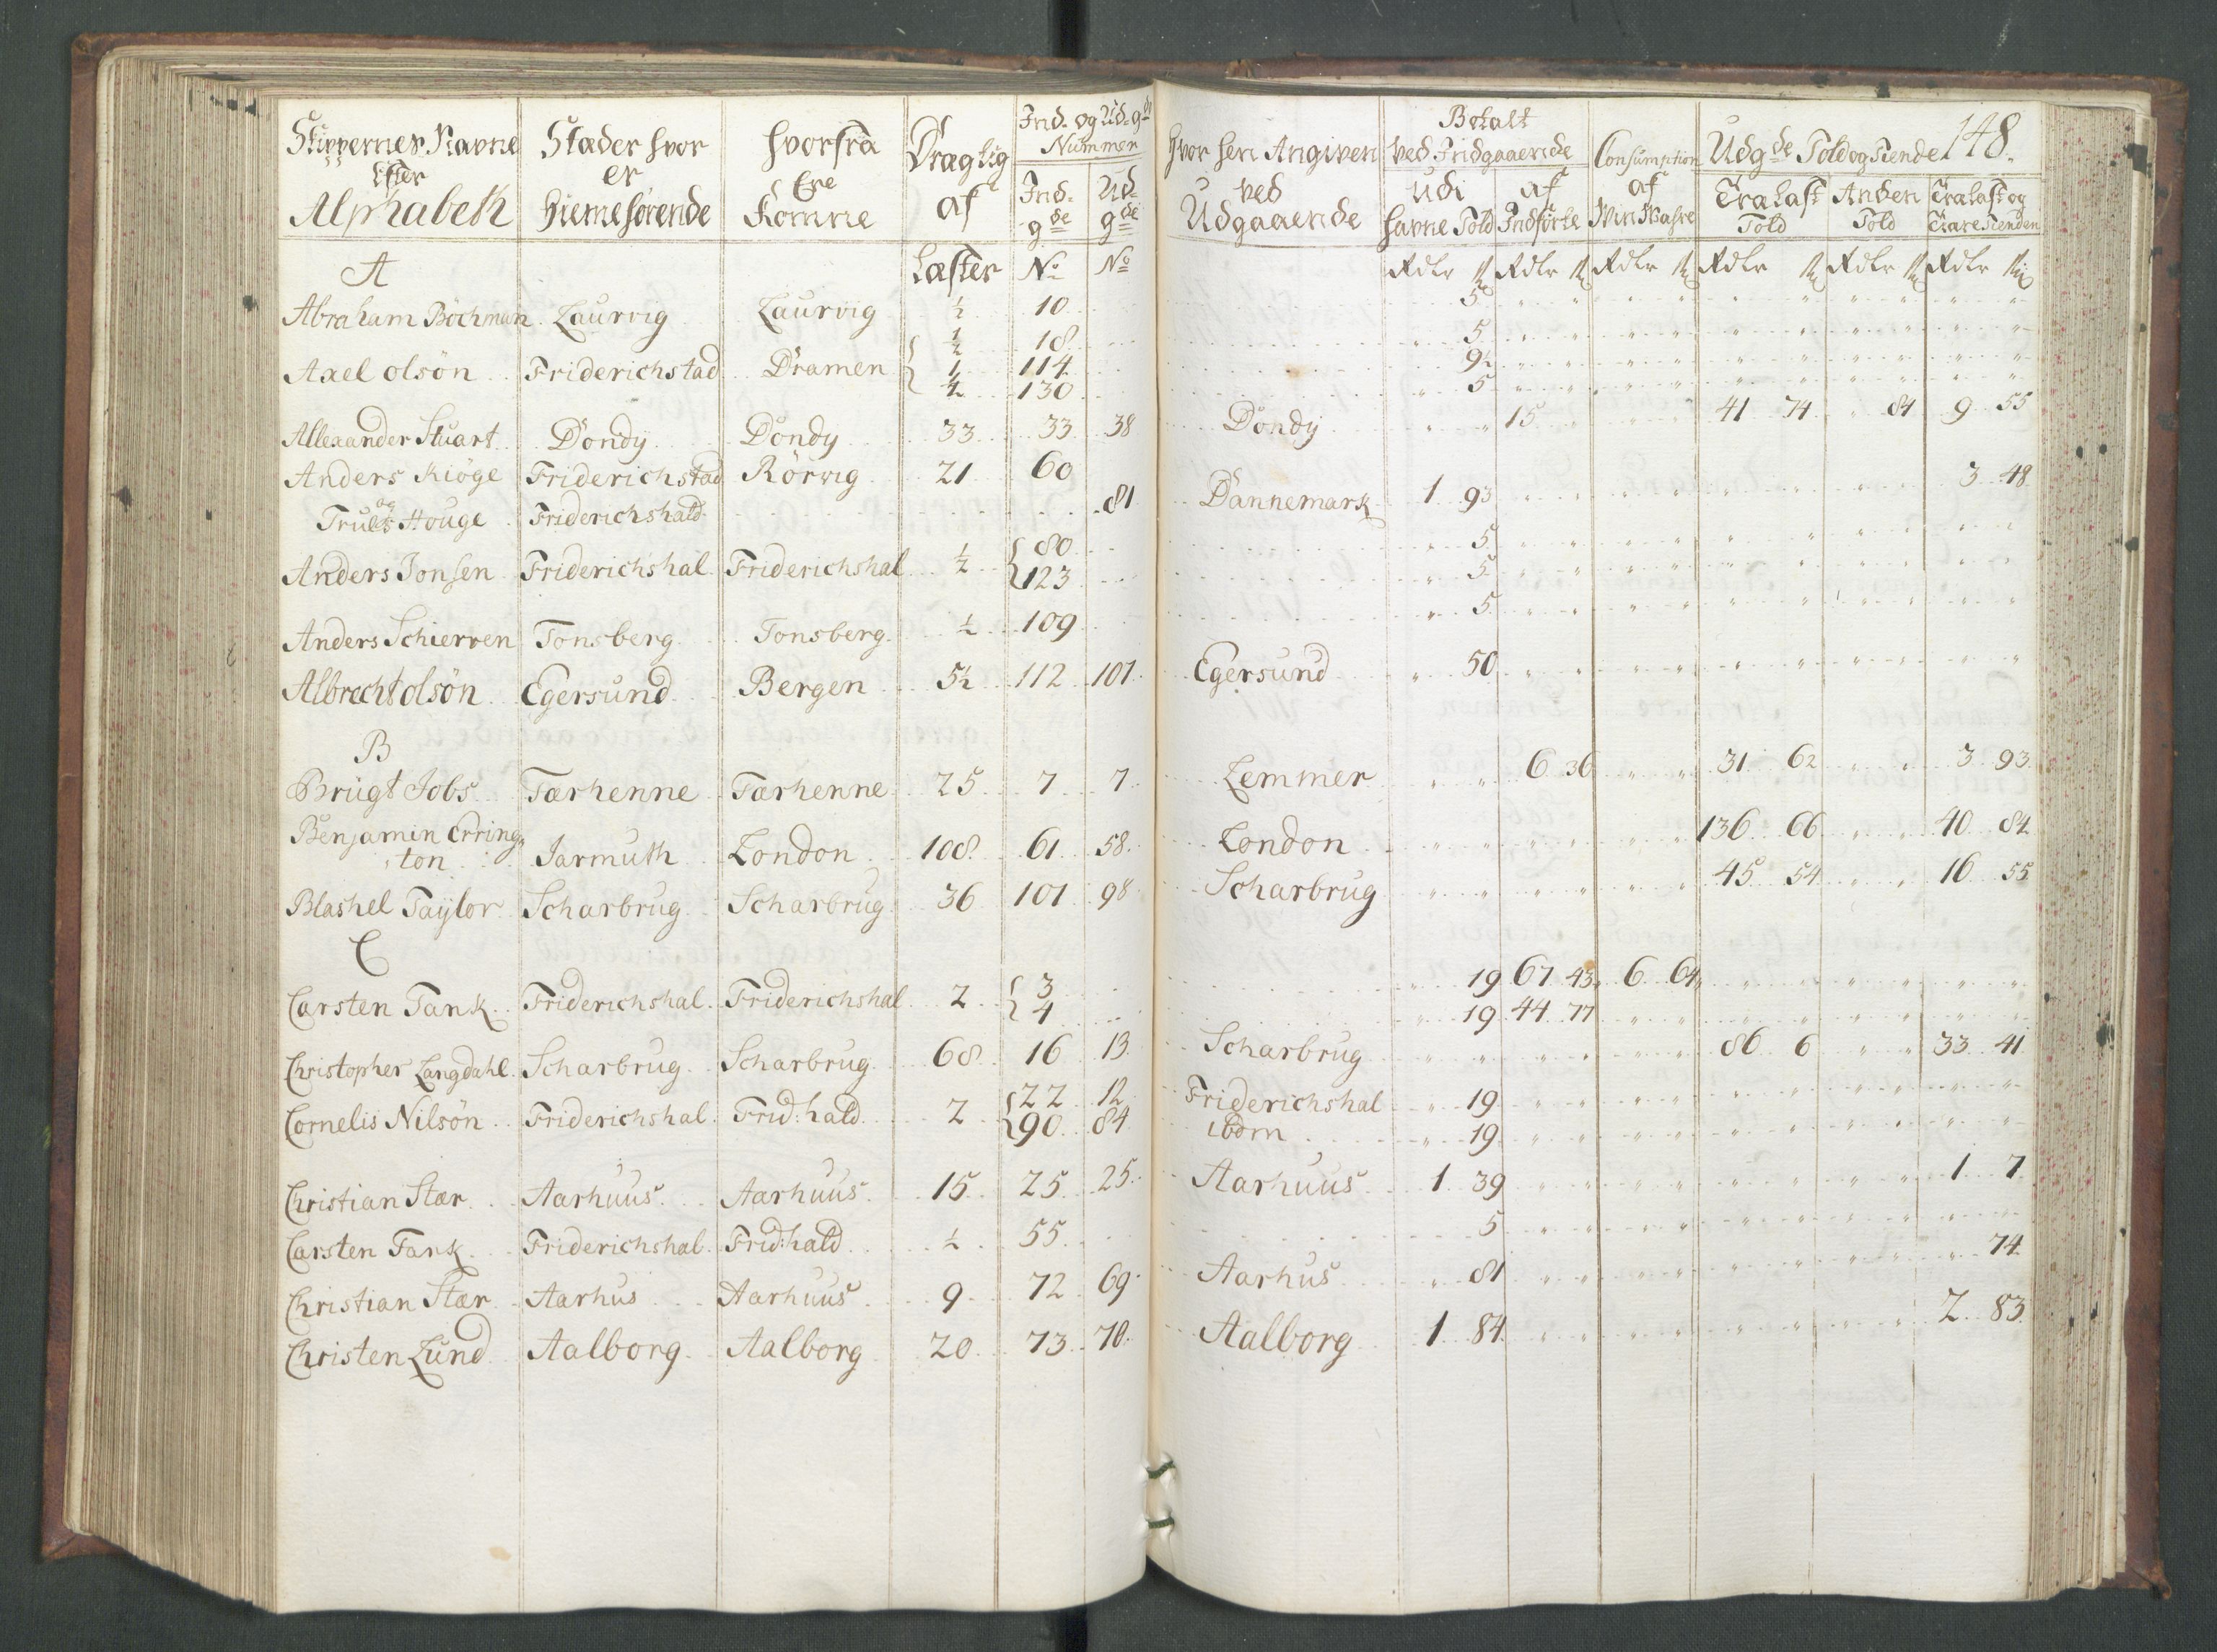 Skippernes Navne Efter Alphabeth | Stæder hvor er Hiemehörende | Hvorfra Ere Komne | Dragtig af | Ind- og Ud-gde Nummer | Ind-gde | Ud-gde | Hvor hen Angiven ved Udgaaende | Betalt ved Indgaaende | Udi Havne Told | af Indförte | Consumption af Vin Vahre | Udgde Told og Tiende | 148.
Tralast Told | Anden Told | Tralast og Tiære Tienden
A | Læster | No | No | Rdlr ß | Rdlr ß | Rdlr ß | Rdlr ß | Rdlr ß | Rdlr ß
Abraham Böchman | Laurvig | Laurvig | ½ | 10 | 5
Axel olsön | Friderichstad | Dramen | ½ | 18 | 5
1 | 114 | 9½
½ | 130 | 5
Allexander Stuart | Dondÿ | Dondÿ | 33 | 33 | 38 | Dondÿ | 15 | 41 74 | 84 | 9 55
Anders Kiöge | Friderichstad | Rörvig | 21 | 60
og
Truels Houge | Friderichshald | 81 | Dannemark | 1 93 | 3 48
Anders Jonsen | Friderichshal | Friderichshal | ½ | 80 | 5
123 | 5
Anders Schierven | Tonsberg | Tonsberg | ½ | 109 | 5
Albrecht olsön | Egersund | Bergen | 5½ | 112 | 107 | Egersund | 50
B
Brügt Jobs | Tærhenne | Tærhenne | 25 | 7 | 7 | Lemmer | 6 36 | 31 62 | 3 93
Benjamin Erring„
ton | Jarmuth | London | 108 | 61 | 58 | London | 136 66 | 40 84
Blashel Taÿlor | Scharbrug | Scharbrug | 36 | 101 | 98 | Scharbrug | 45 54 | 16 55
C
Carsten Tank | Friderichshal | Friderichshal | 2 | 3 | 19 | 67 43 | 6 64
4 | 19 | 44 77
Christopher Langdahl | Scharbrug | Scharbrug | 68 | 16 | 13 | Scharbrug | 86 6 | 33 41
Cornelis Nilsön | Friderichshal | Frid:hald | 2 | 22 | 12 | Friderichshal | 19
90 | 84 | ibdm | 19
Christian Stær | Aarhuus | Aarhuus | 15 | 25 | 25 | Aarhuus | 1 39 | 1 7
Carsten Tank | Friderichshal | Frid:hald | ½ | 55 | 5
Christian Stær | Aarhus | Aarhuus | 9 | 72 | 69 | Aarhus | 81 | 74
Christen Lund | Aalborg | Aalborg | 20 | 73 | 70 | Aalborg | 1 84 | 2 83